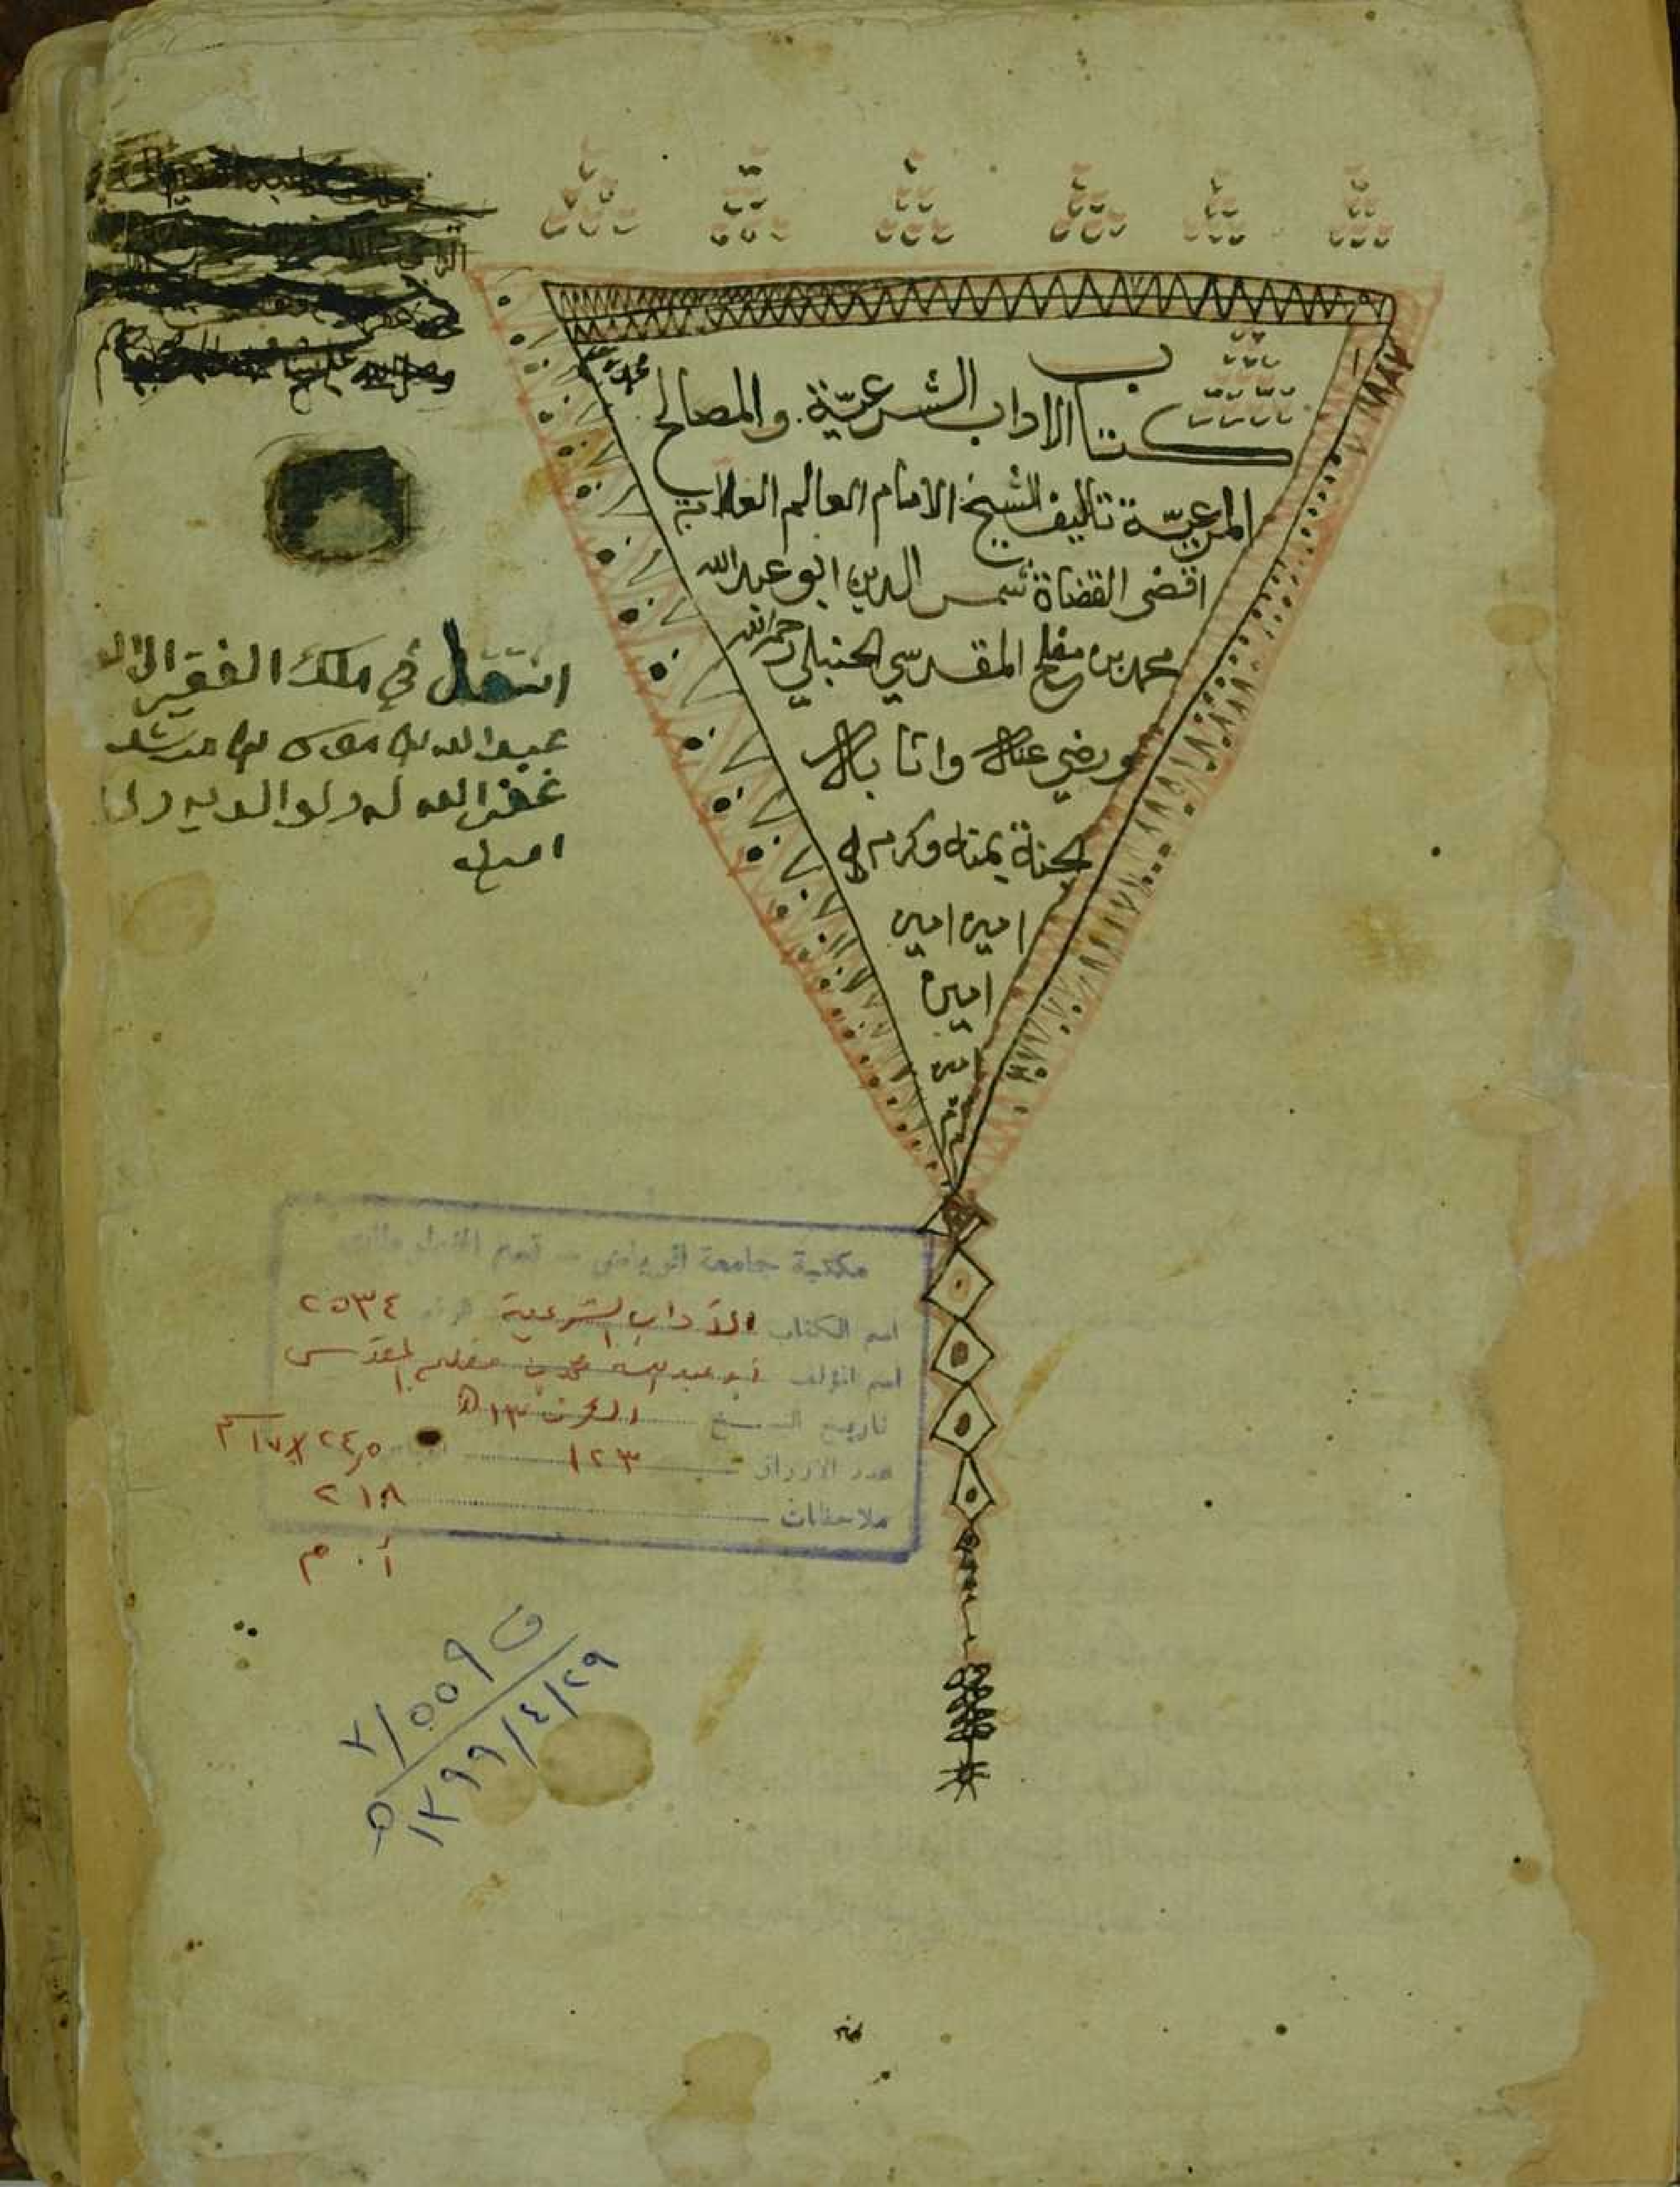 كتاب الاداب الشرعيّة والمصالح
المرعيّة تاليف الشيخ الامام العالم العلامة
اقضى القضاة شمس الدين ابو عبد الله
محمد بن مفلح المقدسي الحنبلي رحمه الله
ورضي عنه واثابه
الجنة بمنه وكرمه
امين امين
امين
امين
انتقل في ملك الفقير الى الله
عبد الله بن
غفر الله له ولوالديه
امين
مكتبة جامعة الرياض - قسم المخطوطات
اسم الكتاب الآداب الشرعية ٢٥٣٤
اسم المؤلف أبو عبد الله محمد بن مفلح المقدسي
تاريخ النسخ القرن ١٣ هـ
عدد الاوراق ١٢٣
ملاحظات ٢١٨
أ . م
ف ٧/٥٥٩
١٣٩٩/٤/٢٩ هـ